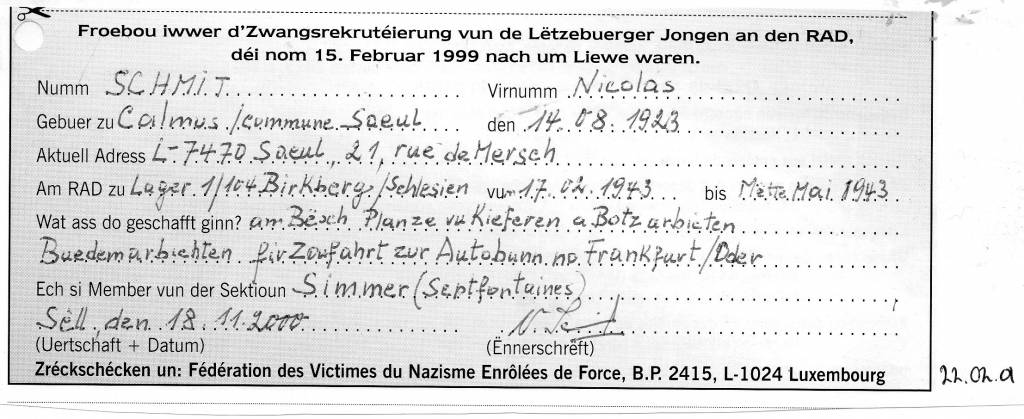 Froebou iwwer d'Zwangsrekrutéierung vun de Lëtzebuerger Jongen an den RAD,
déi nom 15. Februar 1999 nach um Liewe waren.
Numm SCHMIT Virnumm Nicolas
Gebuer zu Calmus /commune Saeul den 14 08 1923
Aktuell Adress L-7470 Saeul, 21, rue de Mersch
Am RAD zu Lager 1/104 Birkberg/Schlesien vum 17.02.1943 bis Mëtte Mai 1943
Wat ass do geschafft ginn? am Bësch Planze vu Kieferen a Botzarbieten
Buedemarbichten fir Zoufahrt zur Autobunn no Frankfurt/Oder
Ech si Member vun der Sektioun Simmer (Septfontaines)
Sëll, den 18.11.2000
(Uertschaft + Datum) (Ënnerschrëft)
Zréckschécken un: Fédération des Victimes du Nazisme Enrôlées de Force, B.P. 2415, L-1024 Luxembourg
22.02.a